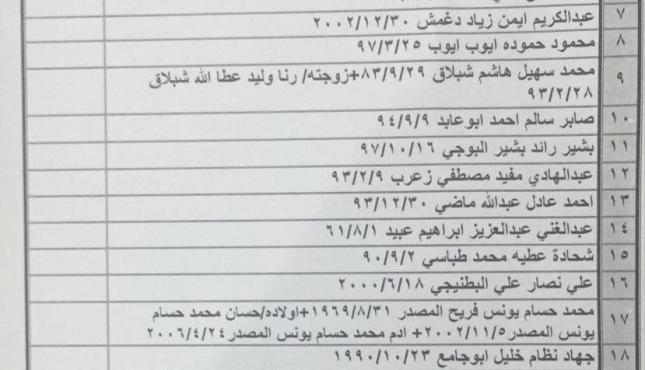 ٧ عبدالكريم ايمن زياد دغمش ٢٠٠٢/١٢/٣٠
٨ محمود حموده ايوب ايوب ٩٧/٣/٢٥
٩ محمد سهيل هاشم شبلاق ٨٣/٩/٢٩+زوجته/ رنا وليد عطا الله شبلاق
٩٣/٢/٢٨
١٠ صابر سالم احمد ابوعابد ٩٤/٩/٩
١١ بشير رائد بشير البوجي ٩٧/١٠/١٦
١٢ عبدالهادي مفيد مصطفي زعرب ٩٣/٢/٩
١٣ احمد عادل عبدالله ماضي ٩٣/١٢/٣٠
١٤ عبدالغني عبدالعزيز ابراهيم عبيد ٦١/٨/١
١٥ شحادة عطيه محمد طباسي ٩٠/٩/٢
١٦ علي نصار علي البطنيجي ٢٠٠٠/٦/١٨
١٧ محمد حسام يونس فريح المصدر ١٩٦٩/٨/٣١+اولاده/حسان محمد حسام
يونس المصدر٢٠٠٢/١١/٥+ ادم محمد حسام يونس المصدر٢٠٠٦/٤/٢٤
١٨ جهاد نظام خليل ابوجامع ١٩٩٠/١٠/٢٣